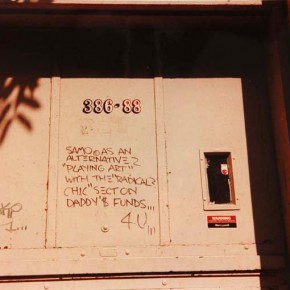 386-88
SAMO© AS AN
ALTERNATIVE 2
"PLAYING ART"
WITH THE "RADICAL?
CHIC" SECT ON
DADDY'$ FUNDS,,,
4 U,,,
WARNING